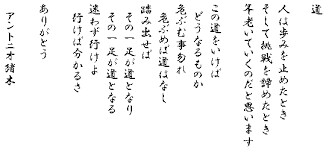 道
人は歩みを止めたとき
そして挑戦を諦めたとき
年老いていくのだと思います
この道をいけば
どうなるものか
危ぶむ事なかれ
危ぶめば道はなし
踏み出せば
その一足が道となり
その一足が道となる
迷わず行けよ
行けば分かるさ
ありがとう
アントニオ猪木